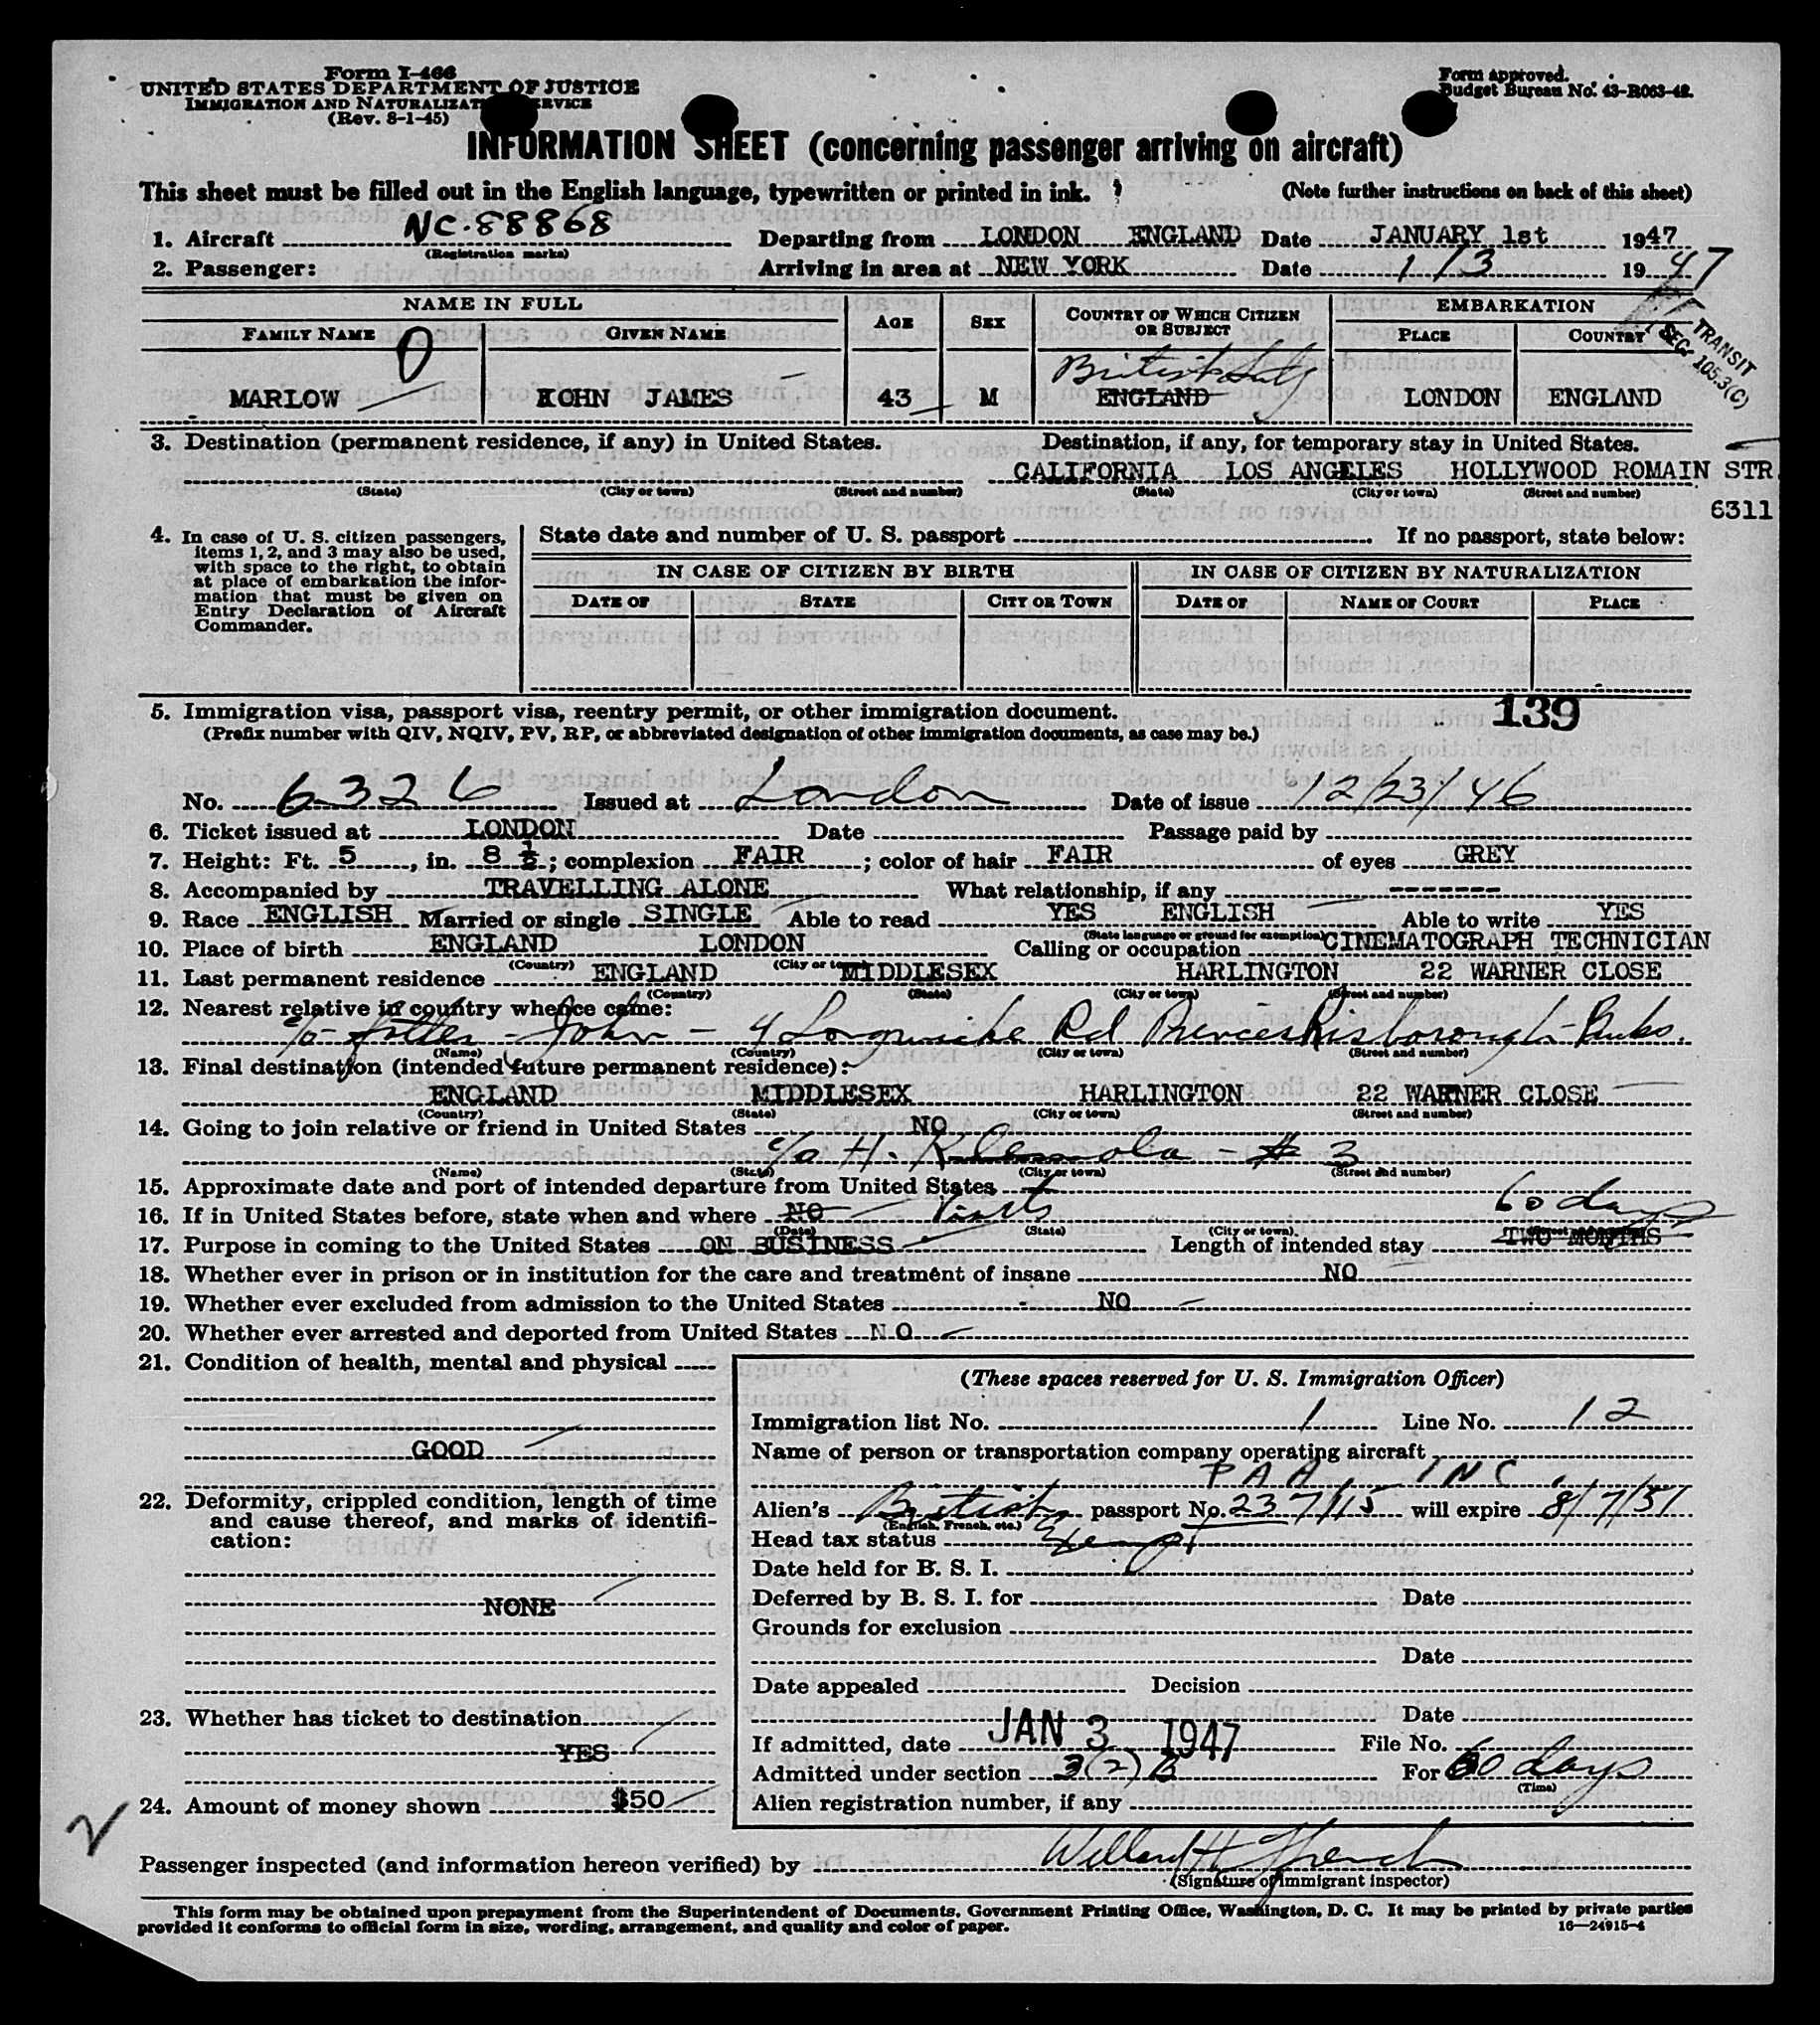 Form I-466
UNITED STATES DEPARTMENT OF JUSTICE
IMMIGRATION AND NATURALIZATION SERVICE
(Rev. 8-1-45)
Form approved.
Budget Bureau No. 43-R063-42.
INFORMATION SHEET (concerning passenger arriving on aircraft)
This sheet must be filled out in the English language, typewritten or printed in ink. (Note further instructions on back of this sheet)
1. Aircraft NC.88868 Departing from LONDON ENGLAND Date JANUARY 1st 1947
(Registration marks)
2. Passenger: Arriving in area at NEW YORK Date 1/3 1947
NAME IN FULL AGE SEX COUNTRY OF WHICH CITIZEN OR SUBJECT EMBARKATION
FAMILY NAME GIVEN NAME PLACE COUNTRY
TRANSIT
SEC. 105.3(C)
0
British
MARLOW JOHN JAMES 43 M ENGLAND LONDON ENGLAND
3. Destination (permanent residence, if any) in United States. Destination, if any, for temporary stay in United States.
CALIFORNIA LOS ANGELES HOLLYWOOD ROMAIN STR
(State) (City or town) (Street and number) (State) (City or town) (Street and number)
6311
4. In case of U. S. citizen passengers, items 1, 2, and 3 may also be used, with space to the right, to obtain at place of embarkation the information that must be given on Entry Declaration of Aircraft Commander.
State date and number of U. S. passport If no passport, state below:
IN CASE OF CITIZEN BY BIRTH IN CASE OF CITIZEN BY NATURALIZATION
DATE OF STATE CITY OR TOWN DATE OF NAME OF COURT PLACE
5. Immigration visa, passport visa, reentry permit, or other immigration document. 139
(Prefix number with QIV, NQIV, PV, RP, or abbreviated designation of other immigration documents, as case may be.)
No. 6326 Issued at London Date of issue 12/23/46
6. Ticket issued at LONDON Date Passage paid by
7. Height: Ft. 5, in. 8 ½; complexion FAIR; color of hair FAIR of eyes GREY
8. Accompanied by TRAVELLING ALONE What relationship, if any -------
9. Race ENGLISH Married or single SINGLE Able to read YES ENGLISH Able to write YES
(State language or ground for exemption)
10. Place of birth ENGLAND LONDON Calling or occupation CINEMATOGRAPH TECHNICIAN
(Country) (City or town)
11. Last permanent residence ENGLAND MIDDLESEX HARLINGTON 22 WARNER CLOSE
(Country) (State) (City or town) (Street and number)
12. Nearest relative in country whence came:
father - John - 4 Longwicke Rd Princes Risborough - Bucks.
(Name) (Country) (City or town) (Street and number)
13. Final destination (intended future permanent residence):
ENGLAND MIDDLESEX HARLINGTON 22 WARNER CLOSE
(Country) (State) (City or town) (Street and number)
14. Going to join relative or friend in United States NO
c/o H. - # 3
(Name) (State) (City or town) (Street and number)
15. Approximate date and port of intended departure from United States
16. If in United States before, state when and where NO 60 days
(Date) (State) (City or town) (Street and number)
17. Purpose in coming to the United States ON BUSINESS Length of intended stay TWO MONTHS
18. Whether ever in prison or in institution for the care and treatment of insane NO
19. Whether ever excluded from admission to the United States NO
20. Whether ever arrested and deported from United States NO
21. Condition of health, mental and physical
GOOD
22. Deformity, crippled condition, length of time and cause thereof, and marks of identification:
NONE
23. Whether has ticket to destination
YES
24. Amount of money shown $50
2
(These spaces reserved for U. S. Immigration Officer)
Immigration list No. 1 Line No. 12
Name of person or transportation company operating aircraft
PAA INC
Alien's British passport No. 237115 will expire 8/7/51
(English, French, etc.)
Head tax status Exempt
Date held for B. S. I.
Deferred by B. S. I. for Date
Grounds for exclusion
Date
Date appealed Decision
Date
If admitted, date JAN 3 1947 File No.
Admitted under section 3(2)B For 60 days
(Time)
Alien registration number, if any
Passenger inspected (and information hereon verified) by Willard H French
(Signature of immigrant inspector)
This form may be obtained upon prepayment from the Superintendent of Documents, Government Printing Office, Washington, D. C. It may be printed by private parties
provided it conforms to official form in size, wording, arrangement, and quality and color of paper. 16—24915-4